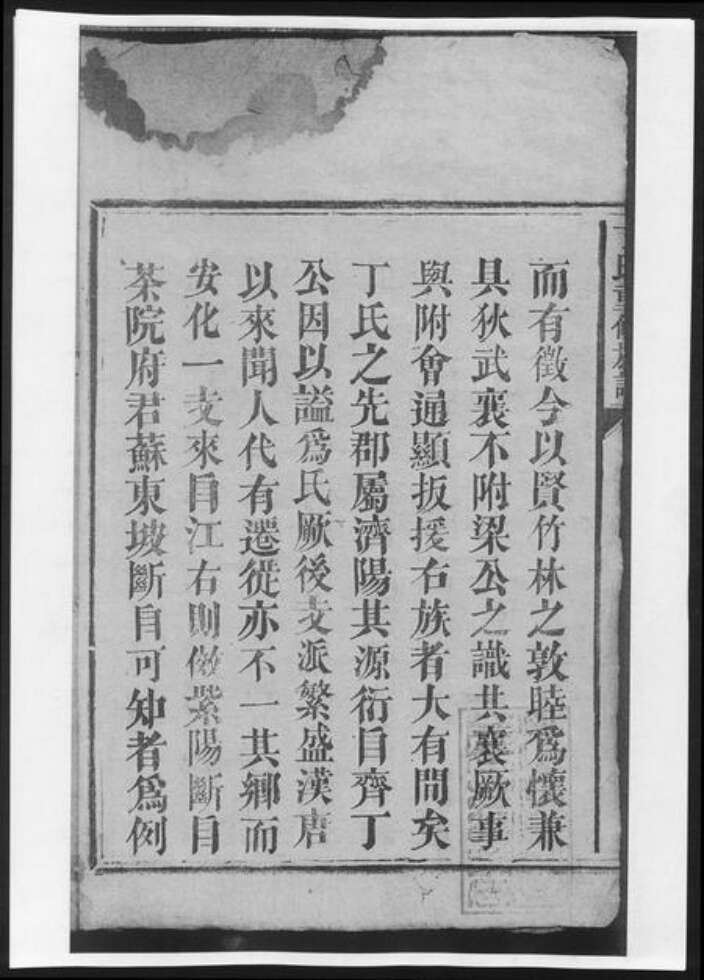 氏重修族譜
而有徵今以賢竹林之敦睦爲懷兼
具狄武襄不附梁公之識共襄厥事
與附會通顯扳援右族者大有間矣
丁氏之先郡屬濟陽其源衍自齊丁
公因以謚爲氏厥後支派繁盛漢唐
以來聞人代有遷徙亦不一其鄉而
安化一支來自江右則倣紫陽斷自
茶院府君蘇東坡斷自可知者爲例